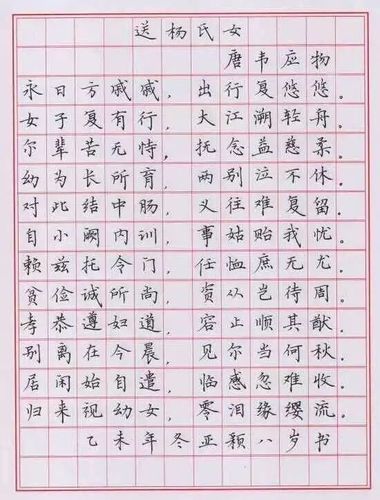 送杨氏女
唐韦应物
永日方戚戚，出行复悠悠。
女子复有行，大江溯轻舟。
尔辈苦无恃，抚念益慈柔。
幼为长所育，两别泣不休。
对此结中肠，义往难复留。
自小阙内训，事姑贻我忧。
赖兹托令门，任恤庶无尤。
贫俭诚所尚，资从岂待周。
孝恭遵妇道，容止顺其猷。
别离在今晨，见尔当何秋。
居闲始自遣，临感忽难收。
归来视幼女，零泪缘缨流。
乙未年冬亚颖八岁书